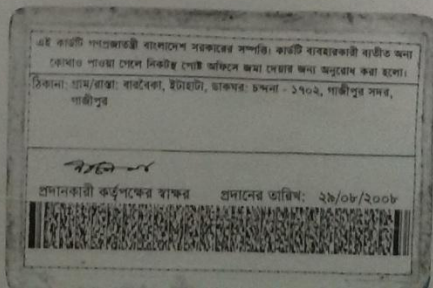 এই কার্ডটি গণপ্রজাতন্ত্রী বাংলাদেশ সরকারের সম্পত্তি। কার্ডটি ব্যবহারকারী ব্যতীত অন্য
কোথাও পাওয়া গেলে নিকটস্থ পোষ্ট অফিসে জমা দেয়ার জন্য অনুরোধ করা হলো।
ঠিকানা: গ্রাম/রাস্তা: বারবৈকা, ইটাহাটা, ডাকঘর: চন্দনা - ১৭০২, গাজীপুর সদর,
গাজীপুর
প্রদানকারী কর্তৃপক্ষের স্বাক্ষর প্রদানের তারিখ: ২৯/০৮/২০০৮